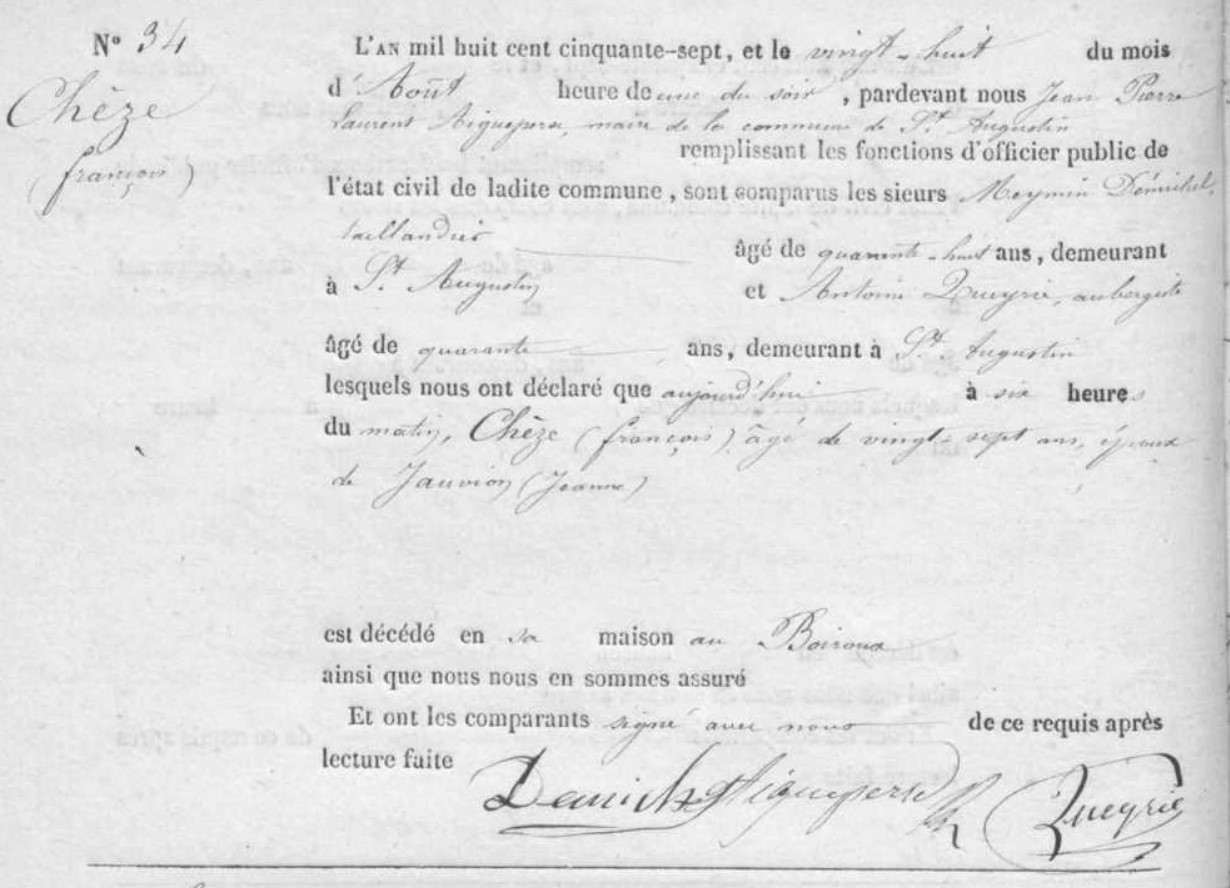 N° 34
Chèze
(françois)
L'AN mil huit cent cinquante-sept, et le vingt-huit du mois
d'Août heure de une du soir, pardevant nous Jean Pierre
Laurent Aigueperse, maire de la commune de St Augustin
remplissant les fonctions d'officier public de
l'état civil de ladite commune, sont comparus les sieurs Meymin Démichel,
taillandier âgé de quarante-huit ans, demeurant
à St Augustin et Antoine Queyrie, aubergiste
âgé de quarante ans, demeurant à St Augustin
lesquels nous ont déclaré que aujourd'hui à six heures
du matin, Chèze (françois) âgé de vingt-sept ans, époux
de Jauvion (Jeanne)
est décédé en sa maison au Boiroux
ainsi que nous nous en sommes assuré
Et ont les comparants signé avec nous de ce requis après
lecture faite
Demichel Aigueperse Queyrie